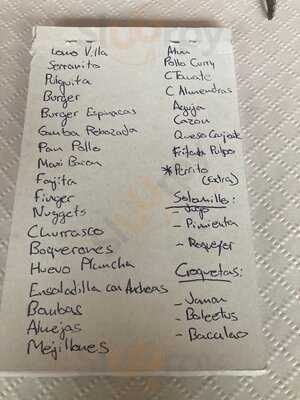 Lomo Villa
Serranito
Pulguita
Burger
Burger Espinacas
Gamba Rebozada
Pan Pollo
Maxi Bacon
Fajita
Finger
Nuggets
Churrasco
Boquerones
Huevo Plancha
Ensaladilla con
Bombas
Almejas
Mejillones
Atun
Pollo Curry
C Tomate
C Almendras
Aguja
Cazon
Queso
Fritada Pulpo
*Perrito
(Extra)
Solomillo:
- Jugo
- Pimienta
- Roquefor
Croquetas:
- Jamon
- Boleetus
- Bacalao